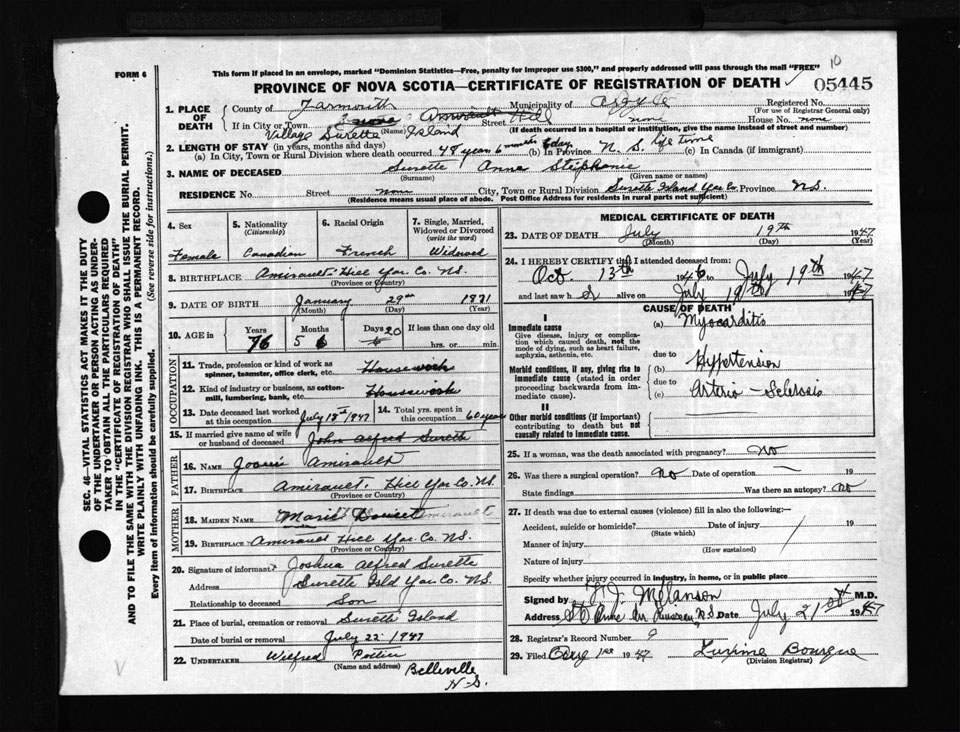 10
FORM 6
This form if placed in an envelope, marked "Dominion Statistics—Free, penalty for improper use $300," and properly addressed will pass through the mail "FREE"
PROVINCE OF NOVA SCOTIA—CERTIFICATE OF REGISTRATION OF DEATH
05445
1. PLACE OF DEATH
County of Yarmouth Municipality of Argyle Registered No.
(For use of Registrar General only)
If in City or Town none Amirault Street Hill none House No. none
Village Surette (Name) Island (If death occurred in a hospital or institution, give the name instead of street and number)
2. LENGTH OF STAY (in years, months and days)
(a) In City, Town or Rural Division where death occurred 48 years 6 months 6 days (b) In Province N. S. life time (c) In Canada (if immigrant)
3. NAME OF DECEASED Surette Anne Stephanie
(Surname) (Given name or names)
RESIDENCE No. Street none City, Town or Rural Division Surette Island Yar Co. Province N.S.
(Residence means usual place of abode. Post Office Address for residents in rural parts not sufficient)
4. Sex Female
5. Nationality (Citizenship) Canadian
6. Racial Origin French
7. Single, Married, Widowed or Divorced (write the word) Widowed
8. BIRTHPLACE Amirault Hill Yar. Co. N.S.
(Province or Country)
9. DATE OF BIRTH January 29th 1871
(Month) (Day) (Year)
10. AGE in Years 76 Months 5 Days 20 If less than one day old
hrs. or min.
OCCUPATION
11. Trade, profession or kind of work as spinner, teamster, office clerk, etc. Housework
12. Kind of industry or business, as cotton-mill, lumbering, bank, etc. Housework
13. Date deceased last worked at this occupation July 18th 1947
14. Total yrs. spent in this occupation 60 years
15. If married give name of wife or husband of deceased John Alfred Surette
FATHER
16. NAME Amirault
17. BIRTHPLACE Amirault Hill Yar Co. N.S.
(Province or Country)
MOTHER
18. MAIDEN NAME Marie Amirault
19. BIRTHPLACE Amirault Hill Yar Co. N.S.
(Province or Country)
20. Signature of informant Joshua Alfred Surette
Address Surette Isld Yar Co. N.S.
Relationship to deceased Son
21. Place of burial, cremation or removal Surette Island
Date of burial or removal July 22 1947
22. UNDERTAKER Wilfred Pottier
(Name and address) Belleville
N.S.
MEDICAL CERTIFICATE OF DEATH
23. DATE OF DEATH July 19th 1947
(Month) (Day) (Year)
24. I HEREBY CERTIFY that I attended deceased from:
Oct. 13th 1946 to July 19th 1947
and last saw her alive on July 19th 1947
CAUSE OF DEATH
I
Immediate cause
Give disease, injury or complication which caused death, not the mode of dying, such as heart failure, asphyxia, asthenia, etc.
(a) Myocarditis
due to
Morbid conditions, if any, giving rise to immediate cause (stated in order proceeding backwards from immediate cause).
(b) Hypertension
due to
(c) Arterio-Sclerosis
II
Other morbid conditions (if important) contributing to death but not causally related to immediate cause.
25. If a woman, was the death associated with pregnancy? No
26. Was there a surgical operation? No Date of operation — 19
State findings Was there an autopsy? No
27. If death was due to external causes (violence) fill in also the following:—
Accident, suicide or homicide? Date of injury 19
(State which)
Manner of injury
(How sustained)
Nature of injury
Specify whether injury occurred in industry, in home, or in public place
Signed by J. Melanson M.D.
Address Ste Anne du Ruisseau, N.S. Date July 21st 1947
28. Registrar's Record Number 9
29. Filed Aug 1st 1947 Bourque
(Division Registrar)
SEC. 46—VITAL STATISTICS ACT MAKES IT THE DUTY OF THE UNDERTAKER OR PERSON ACTING AS UNDERTAKER TO OBTAIN ALL THE PARTICULARS REQUIRED IN THE "CERTIFICATE OF REGISTRATION OF DEATH" AND TO FILE THE SAME WITH THE DIVISION REGISTRAR WHO SHALL ISSUE THE BURIAL PERMIT.
WRITE PLAINLY WITH UNFADING INK. THIS IS A PERMANENT RECORD.
Every item of information should be carefully supplied. (See reverse side for instructions.)